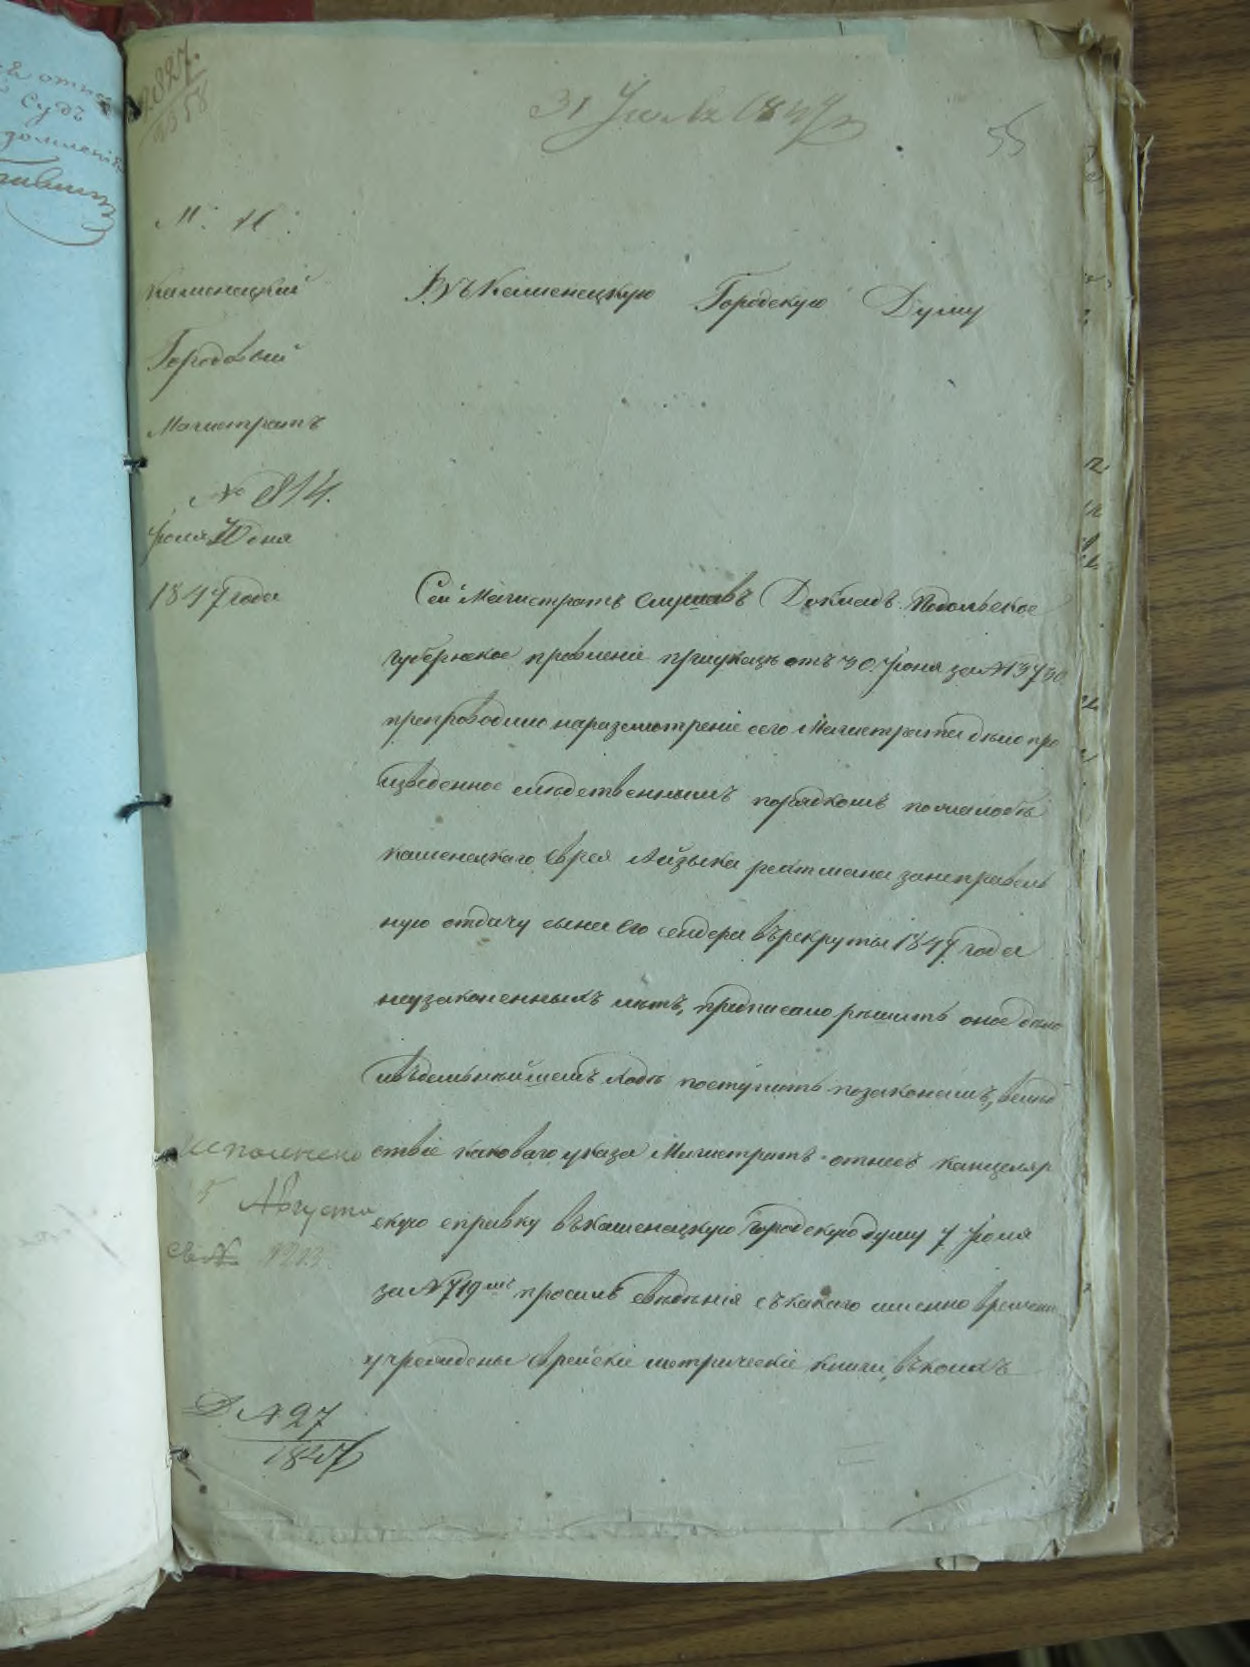 2827.
31 Іюля 1847
55
М: И:
Каменецкий
Въ Каменецкую Городскую Думу
Городовый
Магистратъ
№ 814.
Іюля дня
1847 года
Сей Магистратъ слушавъ Докладъ. Подольское
Губернское правленіе приуказе отъ 30. Іюня за №
препроводило наразсмотреніе сего Магистрата дѣло про
изведенное слѣдственнымъ порядкомъ пожалобѣ
каменецкаго Еврея Айзыка заправель
ную отдачу сына Его Сендера въ рекруты 1847 года
неузаконенныхъ лѣтъ, предписало рѣшить оное дѣло
поступить позаконамъ, вслѣд
ствіе каковаго указа Магистратъ отнесъ канцеляр
скую справку въкаменецкую Городскую думу 7 Іюля
за №719мъ просилъ свѣдѣнія съ какаго именно времени
учреждены Еврейскіе метрическіе книги, въкоихъ
Исполнено
5 Августа
за №
Д. №27
1847